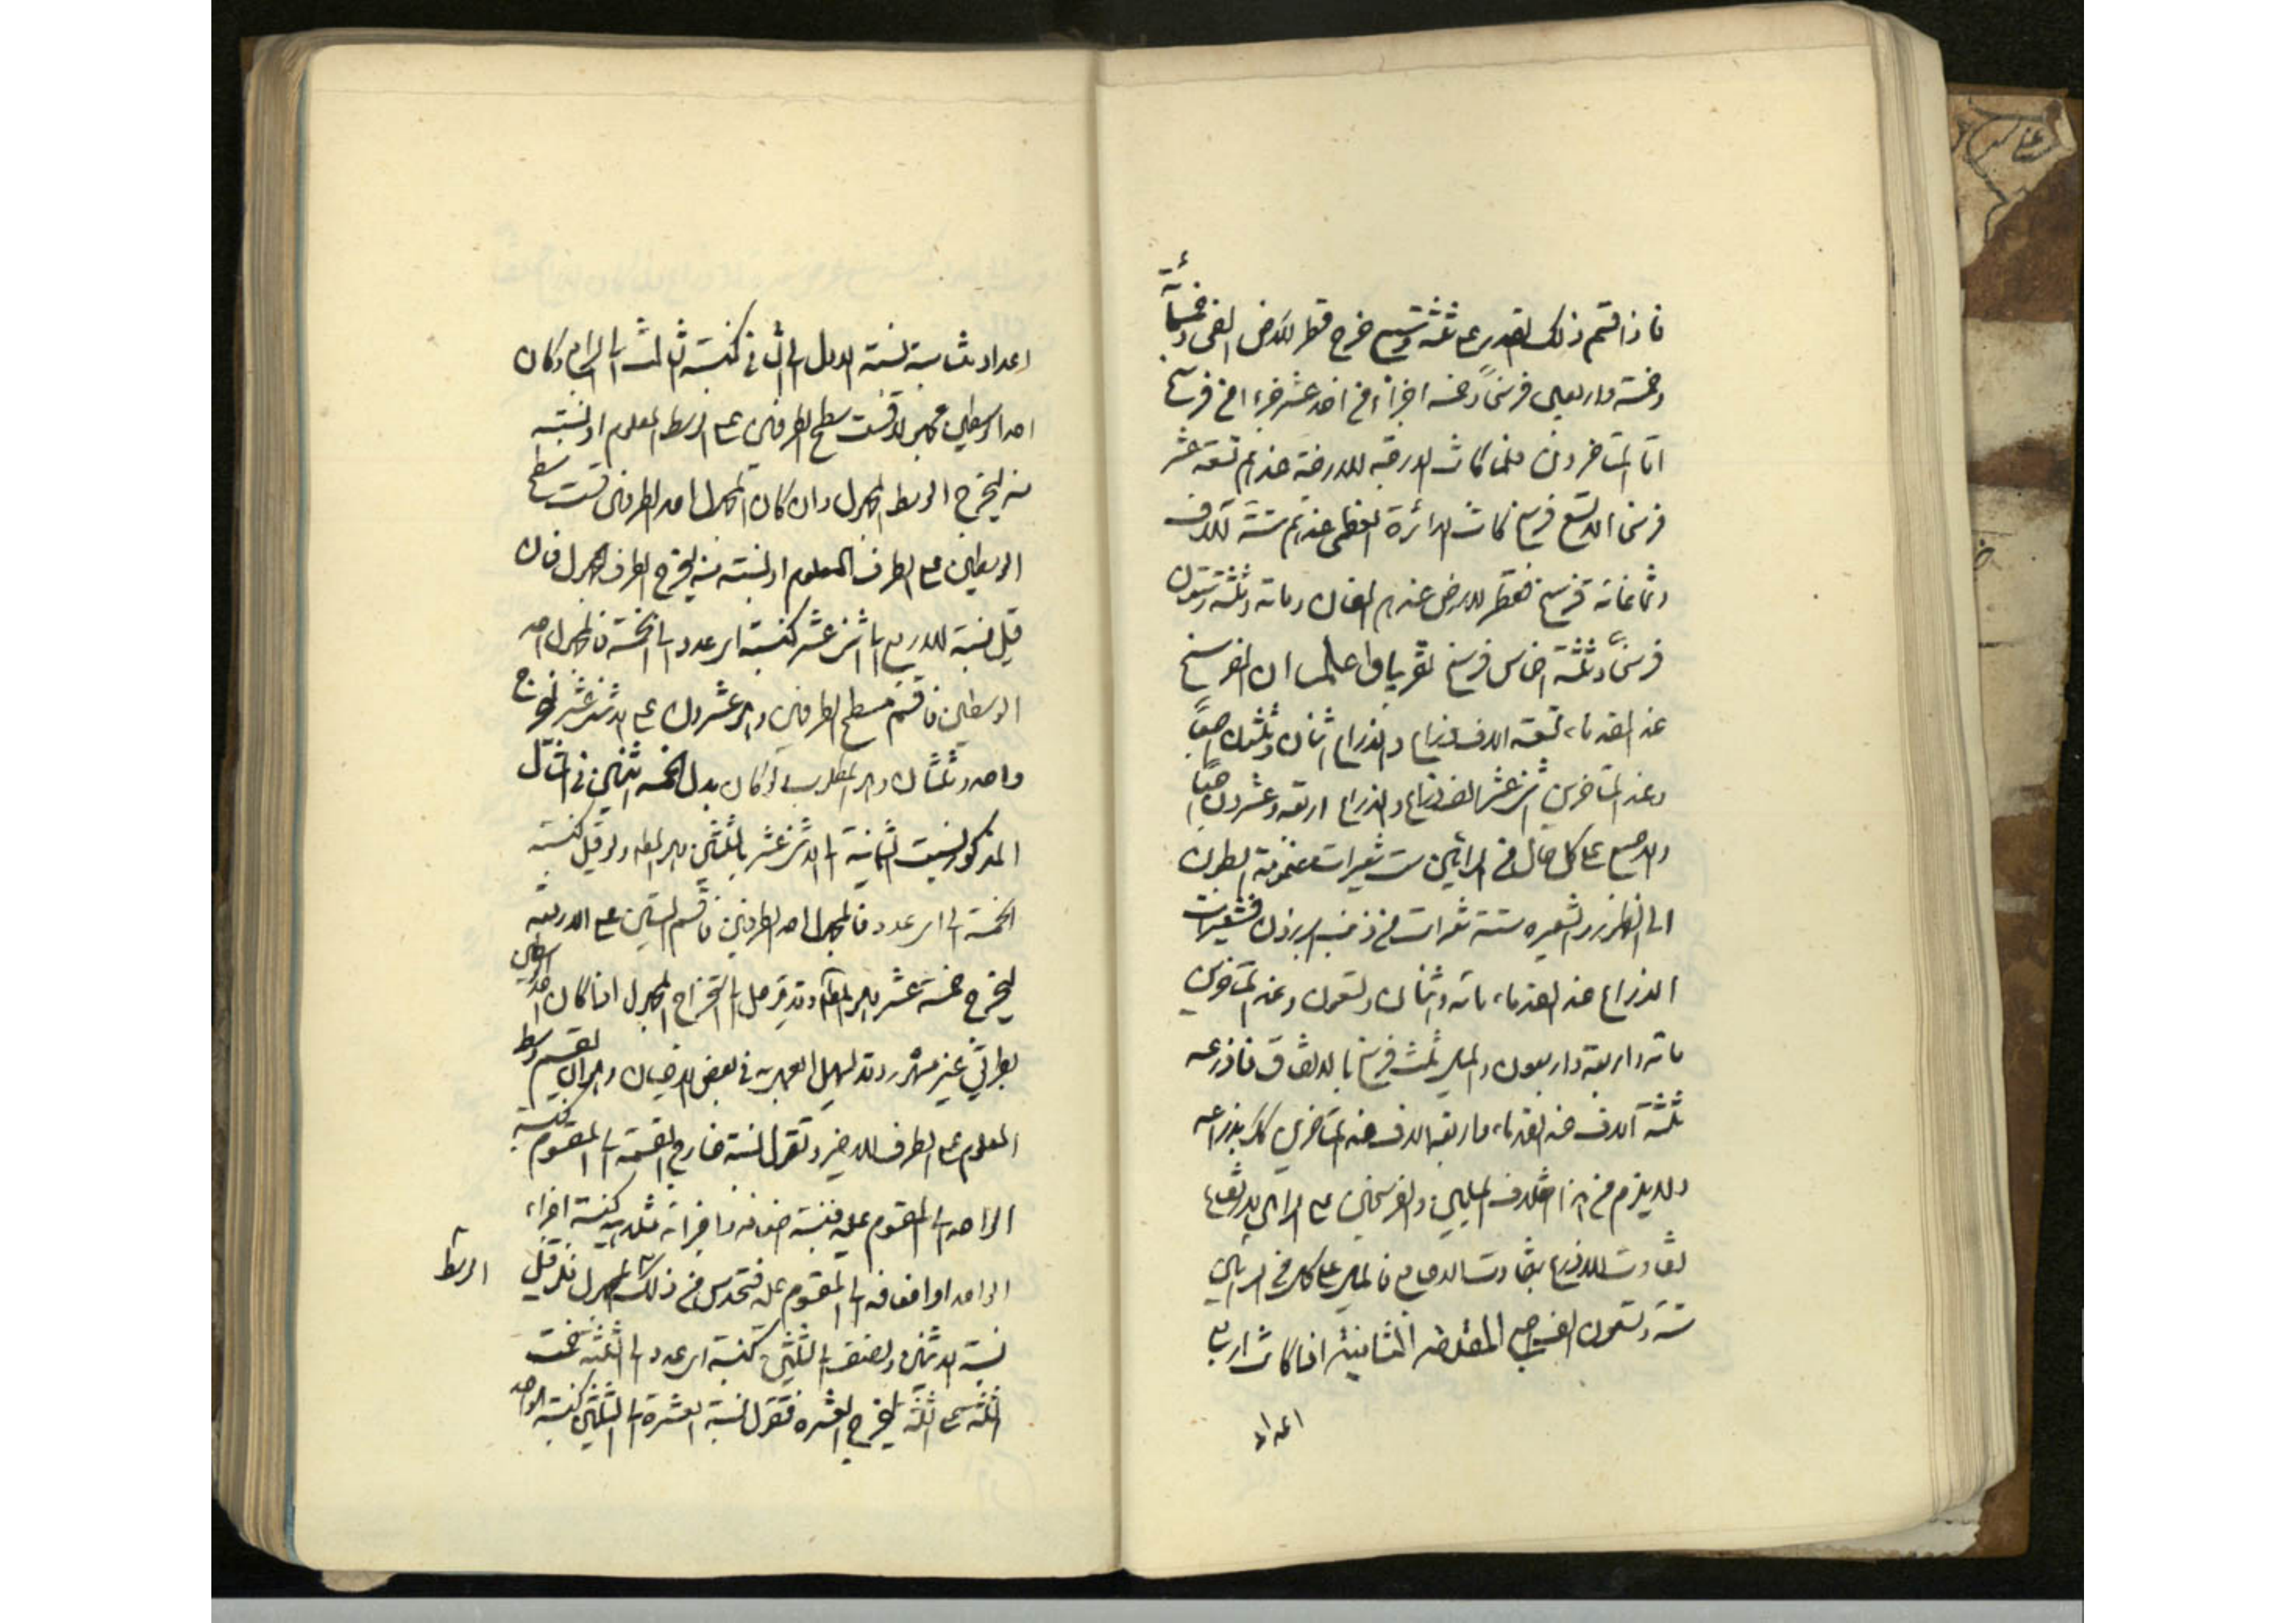 فاذا قسم ذلك القدر على ثلثة وسبع خرج قطر الارض الفين وخمسمائة
وخمسة واربعين فرسخاً وخمسة اجزاء من احد عشر جزءا من فرسخ
اما المتأخرون فلما كانت الدرجة الارضية عندهم تسعة عشر
فرسخا الا تسع فرسخ كانت الدائرة العظمى عندهم ستة آلاف
وثمانمائة فرسخ فقطر الارض عندهم الفان ومائة وثلثة وستون
فرسخاً وثلثة اخماس فرسخ تقريبا واعلم ان الفرسخ
عند القدماء تسعة الاف ذراع والذراع اثنان وثلثون اصبعاً
وعند المتأخرين اثنى عشر الف ذراع والذراع اربعة وعشرون اصبعاً
والاصبع على كل حال من الرأيين ست شعيرات مضمومة البطون
الى الظهور والشعيره ستة شعرات من ذنب البرذون فشعيرات
الذراع عند القدماء مائة واثنان وتسعون وعند المتأخرين
مائة واربعة واربعون والميل ثلث فرسخ بالاتفاق فاذرعه
ثلثة آلاف عند القدماء واربعة الاف عند المتأخرين كل بذراعه
ولا يلزم من هذا اختلاف الميلين والفرسخين على الرأيين لارتفاع
تفاوت الاذرع بتفاوت الاصابع فالميل على كل من الرأيين
ستة وتسعون الف اصبع المقدمة الثانية اذا كانت اربع
اعداد
اعداد متناسبة نسبة الاول الى الثاني كنسبة الثالث الى الرابع وكان
احد الوسطين مجهولا قسمت سطح الطرفين على الوسط المعلوم او نسبته
منه ليخرج الوسط المجهول وان كان المجهول احد الطرفين قسمت سطح
الوسطين على الطرف المعلوم او نسبته منه ليخرج الطرف المجهول فان
قيل نسبة الاربع الى اثنى عشر كنسبة اى عدد الى الخمسة فالمجهول احد
الوسطين فاقسم مسطح الطرفين وهو عشرون على الاثنى عشر ليخرج
واحد وثلثان وهو المطلوب ولو كان بدل الخمسة اثنين في المثال
المذكور لنسبت الثمانية الى الاثنى عشر بالثلثين وهو المط ولو قيل كنسبة
الخمسة الى اى عدد فالمجهول احد الطرفين فاقسم الستين على الاربعة
ليخرج خمسة عشر وهو المط وقد يتوصل الى استخراج المجهول اذا كان احد الوسطين
بطريق غير مشهور وقد يسهل العمل به في بعض الاحيان وهو ان يقسم وسط
المعلوم على الطرف الاخير وتقول نسبة خارج القسمة الى المقسوم كنسبة
الواحد الى المقسوم عليه فنسبة اضعافه واجزائه مثلا اليه كنسبة اجزاء
الواحد او اضعافه الى المقسوم عليه فتحدس من ذلك المجهول فلو قيل
الوسط
نسبة الاثنين ونصف الى الثلثين كنسبة اى عدد الى الثلثة قسمت
الثلثين على الثلثة ليخرج العشرة فتقول نسبة العشرة الى الثلثين كنسبة الواحد